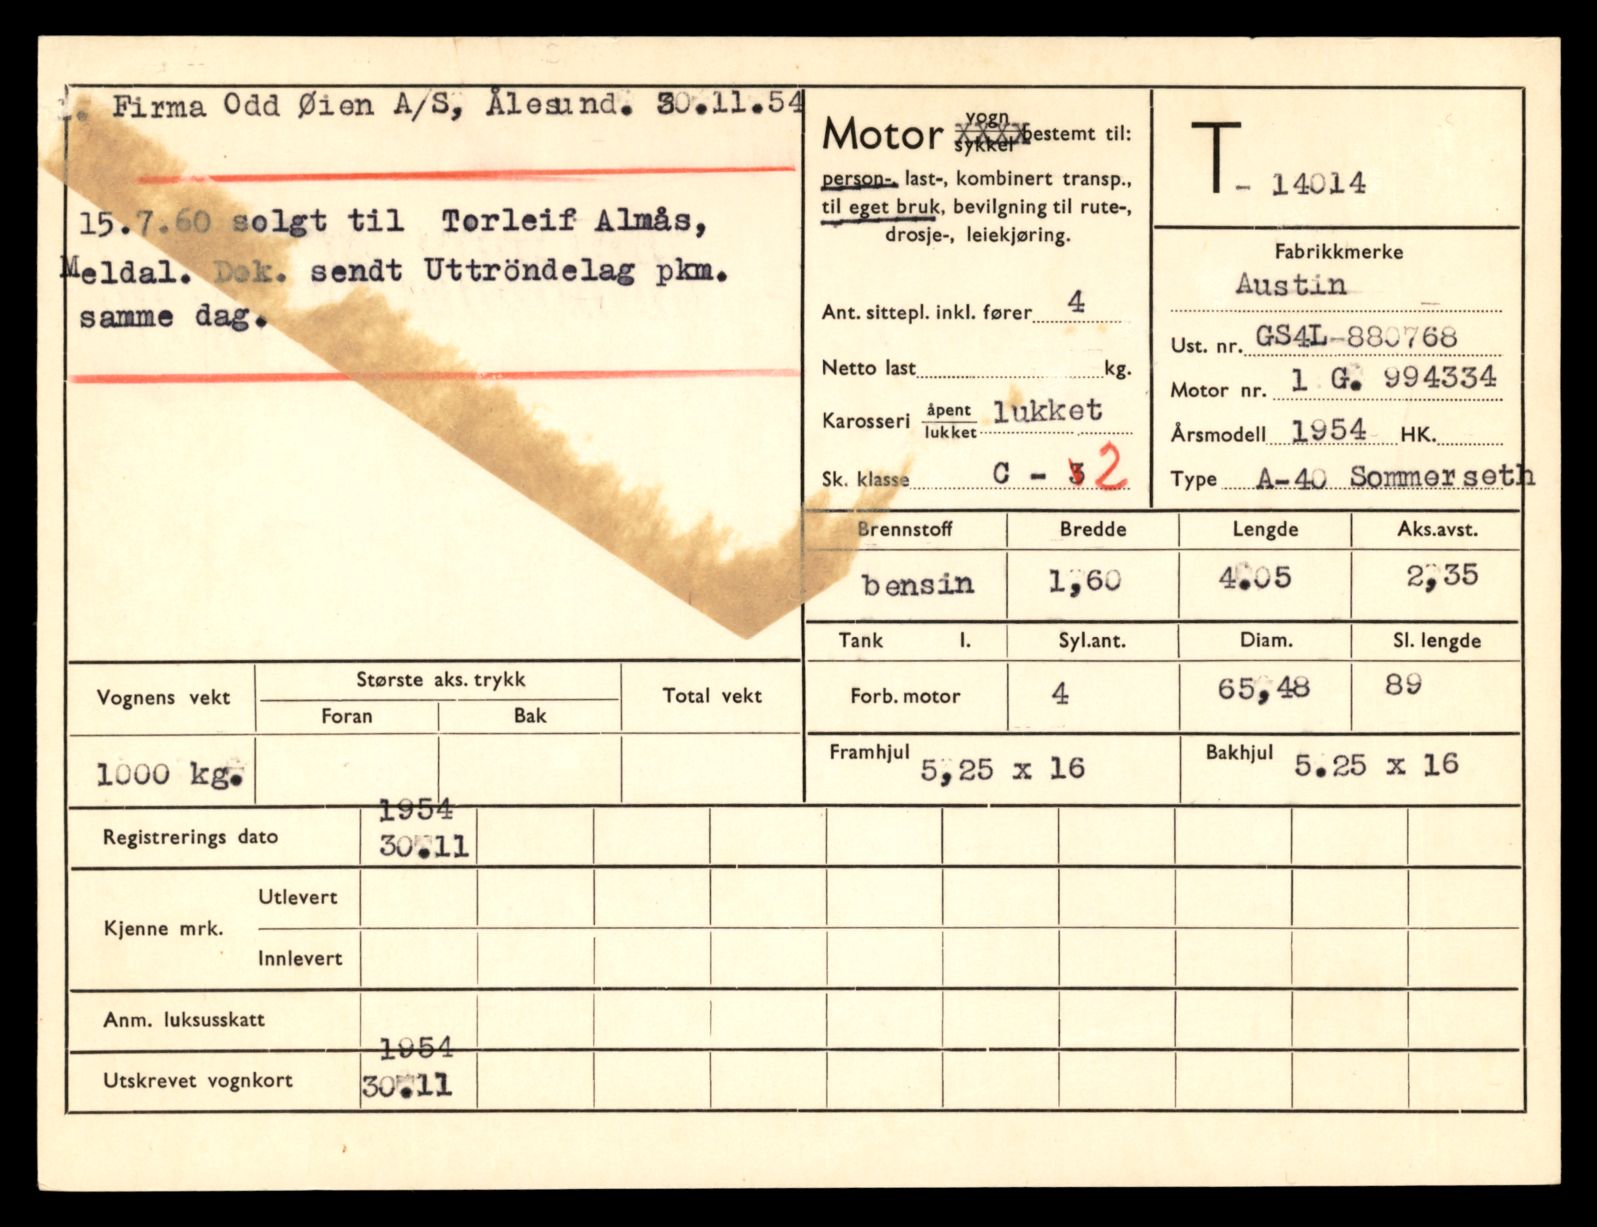 Firma Odd Øien A/S, Ålesund. 30.11.54
15.7.60 solgt til Torleif Almås,
Meldal. Dok. sendt Uttröndelag pkm.
samme dag.
Motor vogn
sykkel bestemt til:
person-, last-, kombinert transp.,
til eget bruk, bevilgning til rute-,
drosje-, leiekjøring.
Ant. sittepl. inkl. fører 4
Netto last kg.
Karosseri åpent
lukket lukket
Sk. klasse C - 3 2
T - 14014
Fabrikkmerke
Austin
Ust. nr. GS4L-880768
Motor nr. 1 G. 994334
Årsmodell 1954 HK.
Type A-40 Sommerseth
Brennstoff Bredde Lengde Aks.avst.
bensin 1,60 4.05 2,35
Tank l. Syl.ant. Diam. Sl. lengde
Forb. motor 4 65,48 89
Framhjul 5,25 x 16 Bakhjul 5.25 x 16
Vognens vekt Største aks. trykk Total vekt
Foran Bak
1000 kg.
1954
Registrerings dato 30.11
Utlevert
Kjenne mrk.
Innlevert
Anm. luksusskatt
1954
Utskrevet vognkort 30.11